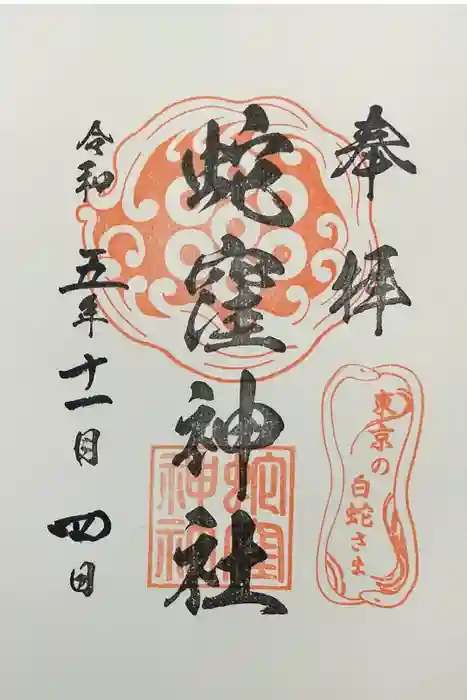 奉拝
東京の
白蛇さま
蛇窪神社
蛇窪
神社
令和五年十一月四日